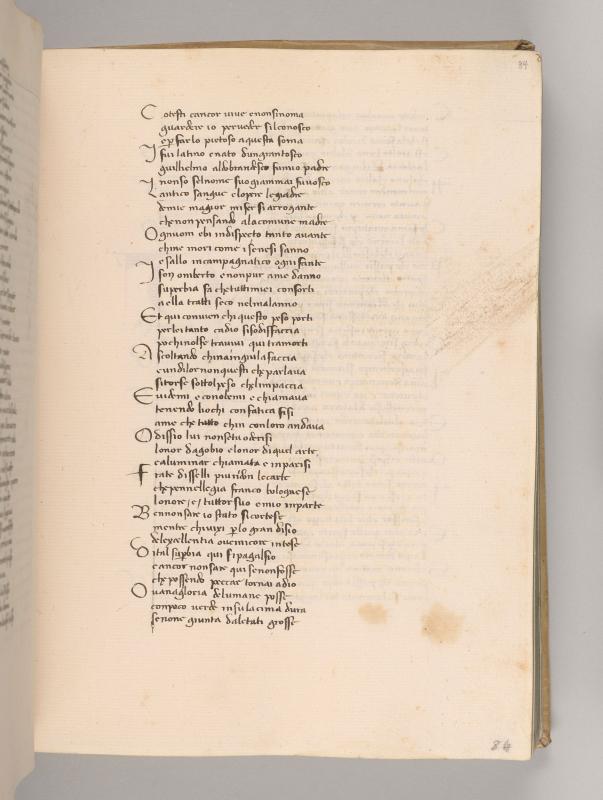 84
Cotesti cancor vive enonsinoma
guardere io pervedre silconosco
e per farlo pietoso aquesta soma
I fui latino enato dungrantosco
guilhelmo aldobrandesco fumio padre
nonso selnome suo giammai fuvosco
Lantico sangue elopere legiadre
demie magior mifer si arrogante
chenonpensando alacomune madre
Ognuom ebi indispecto tanto avante
chine mori come i senesi sanno
e sallo incampagnatico ogni fante
I son omberto enonpur ame danno
superbia fa chetuttimiei consorti
a ella tratti seco nelmalanno
Et qui convien chi questo peso porti
perlei tanto cadio sisodisfaccia
pochinolfe travivi qui tramorti
Ascoltando chinaingiulafaccia
eundilornonquesti che parlava
sitorse sottolpeso chelimpaccia
Evidemi e conobemi e chiamava
tenendo liochi confatica fisi
ame che tutto chin conloro andava
Odissio lui nonsetu oderisi
lonor dagobio elonor diquel arte
caluminar chiamata e inparisi
Frate disselli piuridon lecarte
chepennellegia franco bolognese
lonore / e / tuttorsuo e mio inparte
Bennonsare io stato sicortese
mentre chivixi per lo gran disio
delexcellentia ovemicore intese
Dital superbia qui sipagalfio
eancor nonsare qui senonfosse
che possendo peccar tornai adio
O vanagloria delumane posse
compoco verde insulacima dura
senone giunta daletati grosse
84